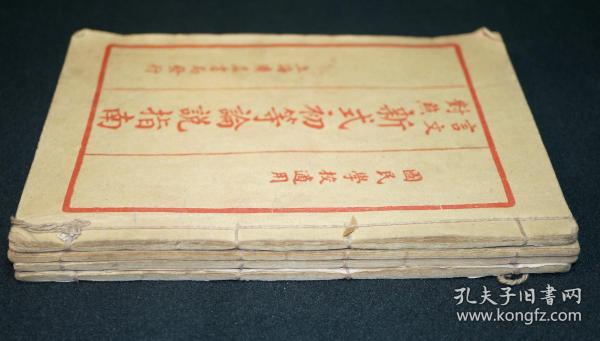 國民學校通用
言文對照
新式初等論說指南
上海廣益書局發行
孔夫子旧書网
www.kongfz.com